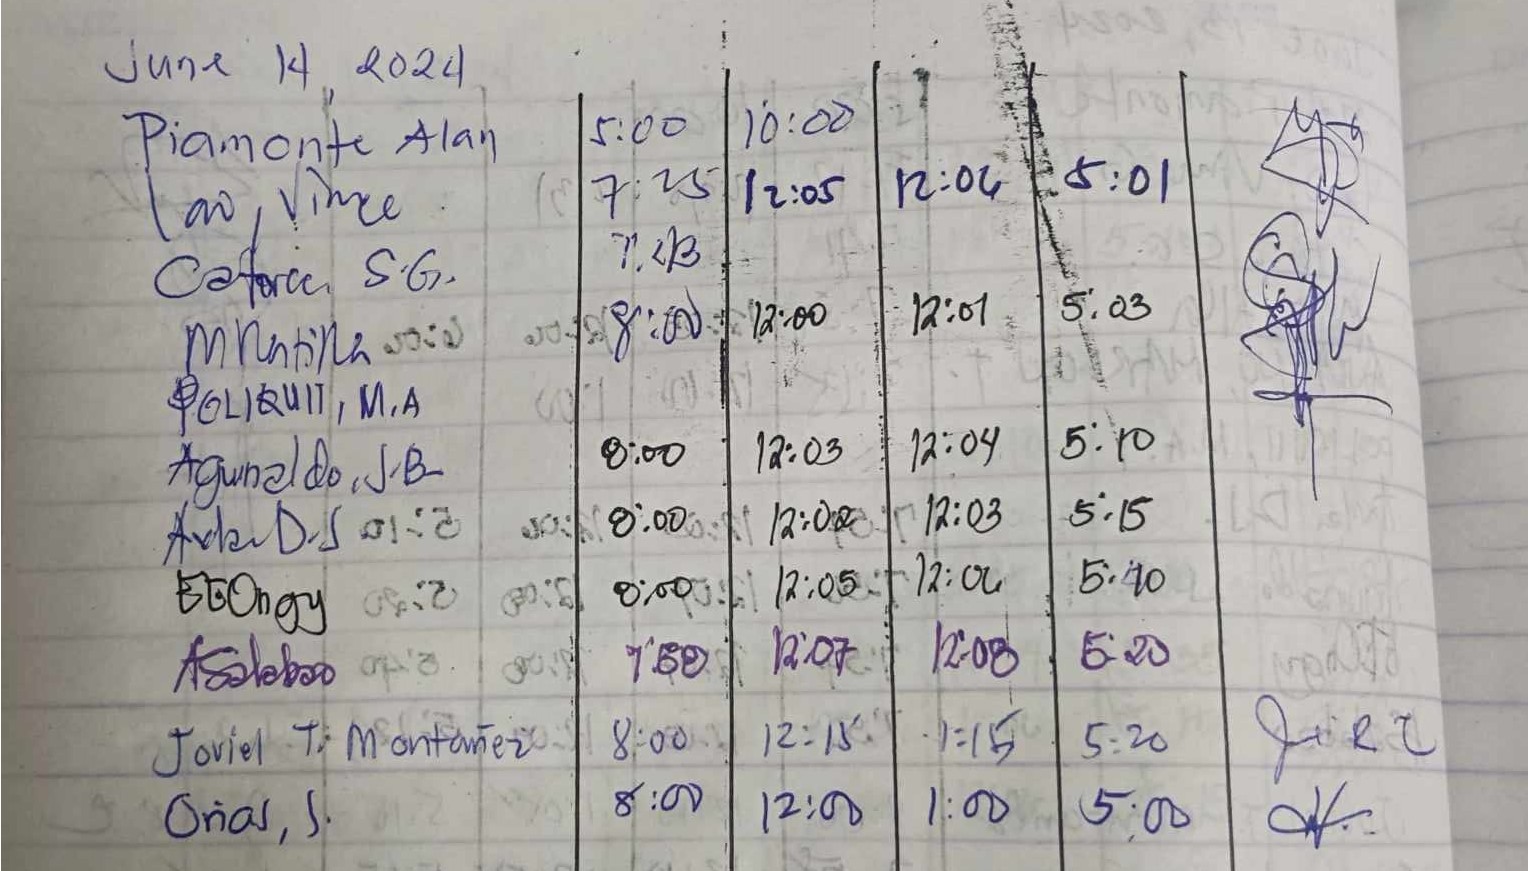 June 14, 2024
Piamonte Alan 5:00 10:00
Lao, Vince 7:25 12:05 12:06 5:01
S.G.
8:00 12:00 12:01 5:03
POLIQUIT, M.A
Agunaldo, J.B 8:00 12:03 12:04 5:10
D.J 8:00 12:02 12:03 5:15
EEOngy 8:00 12:05 12:06 5:40
Asalabao 7:50 12:07 12:08 5:20
Joviel T. Montañez 8:00 12:15 1:15 5:20
Orias, J. 8:00 12:00 1:00 5:00